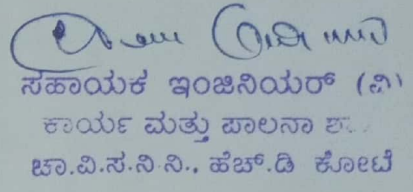 ಸಹಾಯಕ ಇಂಜಿನಿಯರ್ (ವಿ)
ಕಾರ್ಯ ಮತ್ತು ಪಾಲನಾ
ಚಾ.ವಿ.ಸ.ನಿ.ನಿ., ಹೆಚ್.ಡಿ ಕೋಟೆ